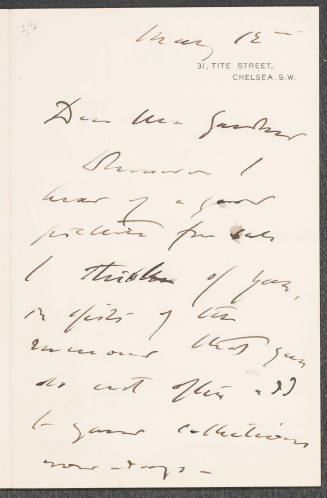 May 12th
31, TITE STREET,
CHELSEA. S.W.
Dear Mrs Gardner
Whenever I
hear of a good
picture for sale
I think of you,
in spite of the
rumour that you
do not often add
to your collections
now-a-days -